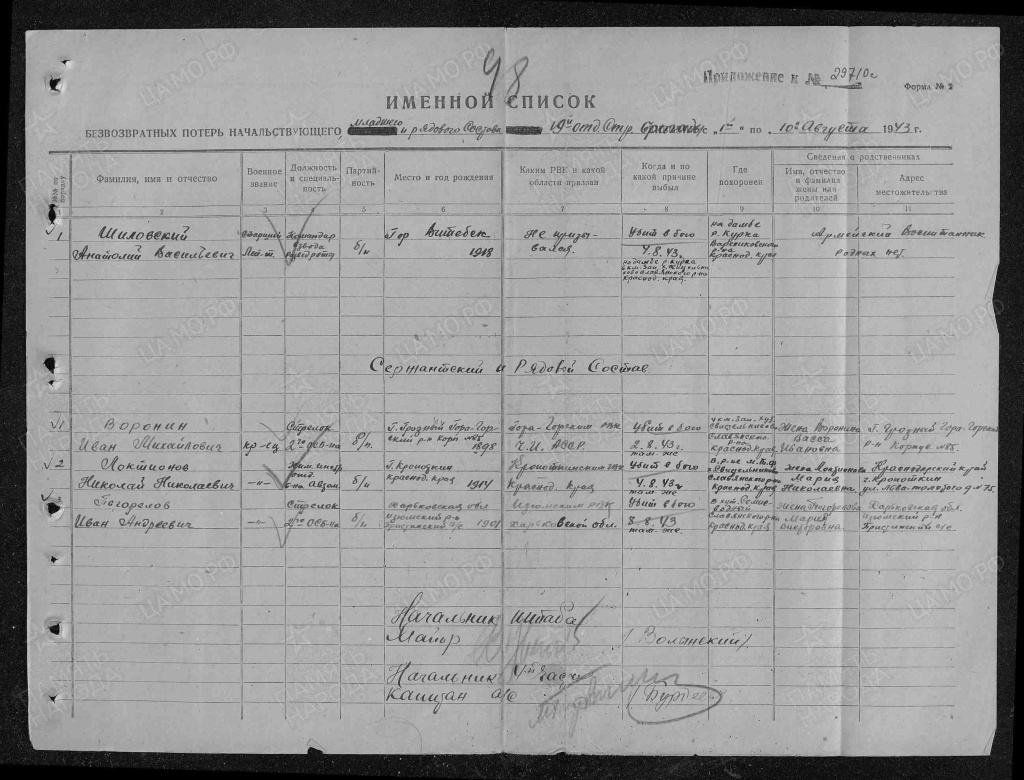 98
Приложение к № 29710с
Форма № 2
ИМЕННОЙ СПИСОК
БЕЗВОЗВРАТНЫХ ПОТЕРЬ НАЧАЛЬСТВУЮЩЕГО младшего и рядового Состава 19й отд. Стр. Бригады с "1" по 10е Августа 1943 г.
№№ по порядку
Фамилия, имя и отчество
Военное звание
Должность и специальность
Партийность
Место и год рождения
Каким РВК и какой области призван
Когда и по какой причине выбыл
Где похоронен
Сведения о родственниках
Имя, отчество и фамилия жены или родителей
Адрес местожительства
1 2 3 4 5 6 7 8 9 10 11
1 Шиловский Анатолий Васильевич
Старший Лей-т.
Командир взвода
б/п
Гор Витебск 1918
Не призывался.
Убит в бою 4.8.43г.
на дамбе р. Курка
на дамбе р. Курка Варениковского р-на Краснод. края
Армейский Воспитанник
родных нет.
Сержантский и Рядовой Состав
1 Воронин Иван Михайлович
кр-ец
Стрелок 2го осб-на
б/п.
Г. Грозный Гора-Горский р-н корп №5 1898
Гора-Горским РВК Ч.И. АССР.
Убит в бою 2.8.43г. там-же
Славянского р-на Краснод. край
Жена Воронина Васса Ивановна
Г. Грозный Гора-Горский р-н Корпус №5.
2 Локтионов Николай Николаевич
-"-
б/п
Г. Кропоткин Краснод. край 1914
Кропоткинским РВК Краснод. край
Убит в бою 4.8.43г там-же
Славянского р-на Краснод. край
жена Локтионова Мария Николаевна
Краснодарский край г. Кропоткин ул. Льва-толстого д № 75.
3 Погорелов Иван Андреевич
-"-
Стрелок 2го ОСБ-на
б/п
Харьковская обл Изюмский р-н 1901
Изюмским РВК Харьковской обл.
Убит в бою 8.8.43 там-же
Славянского р-на Краснод. край
Жена Погорелова Мария
Харьковская обл. Изюмский р-н
Начальник штаба
Майор / Волянский /
Начальник 4й части
Капитан а/с
ЦАМО.РФ
ПАМЯТЬ НАРОДА